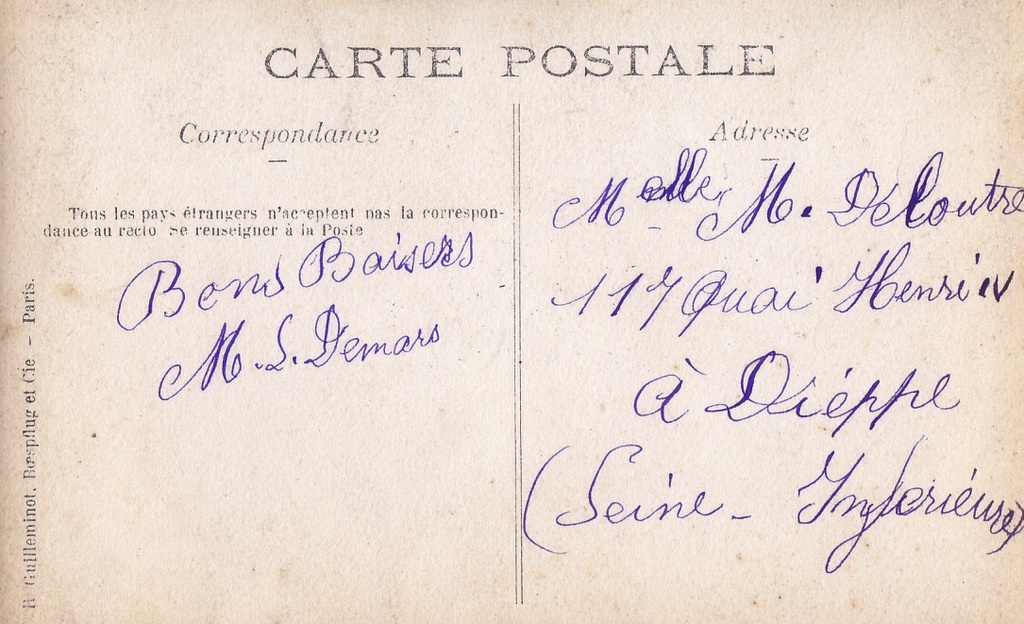 CARTE POSTALE
Correspondance
Adresse
Tous les pays étrangers n'acceptent pas la correspon-
dance au recto Se renseigner à la Poste
Bons Baisers
M. L. Demars
Melle M. Déloutre
117 Quai Henri IV
à Diéppe
(Seine - Inferiéure)
R Guilleminot, Bœspflug et Cie - Paris.